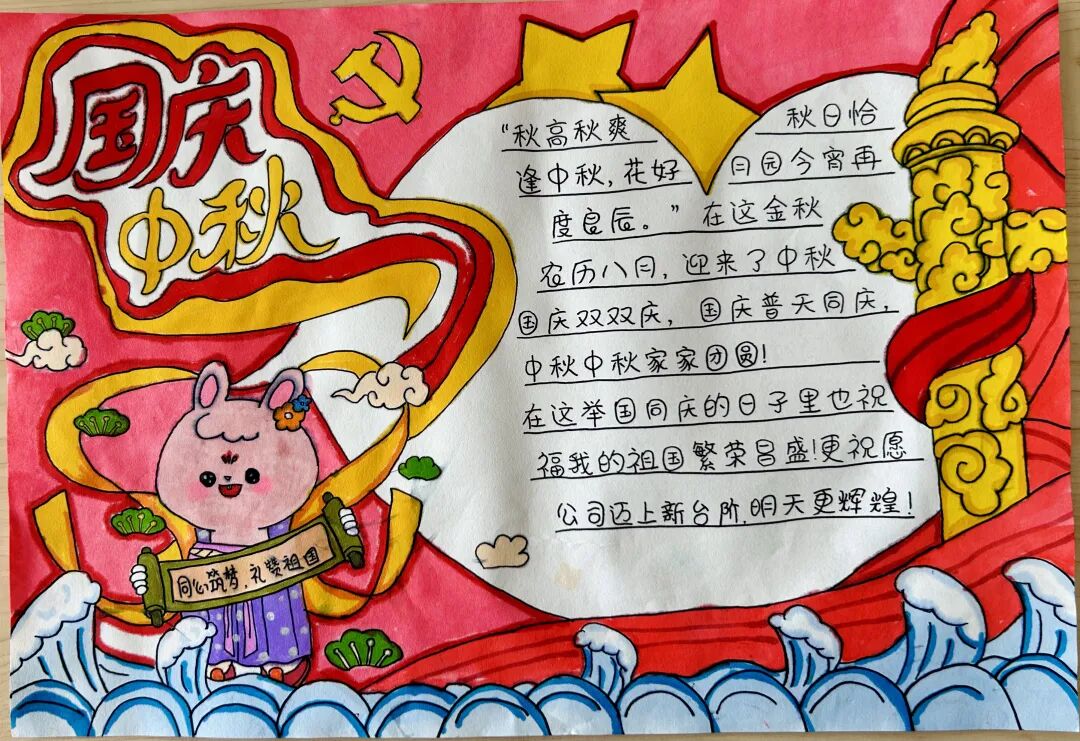 国庆
中秋
“秋高秋爽 秋日恰
逢中秋,花好 月园今宵再
度良辰。”在这金秋
农历八月,迎来了中秋
国庆双双庆,国庆普天同庆,
中秋中秋家家团圆!
在这举国同庆的日子里也祝
福我的祖国繁荣昌盛!更祝愿
公司迈上新台阶,明天更辉煌!
同心筑梦,礼赞祖国